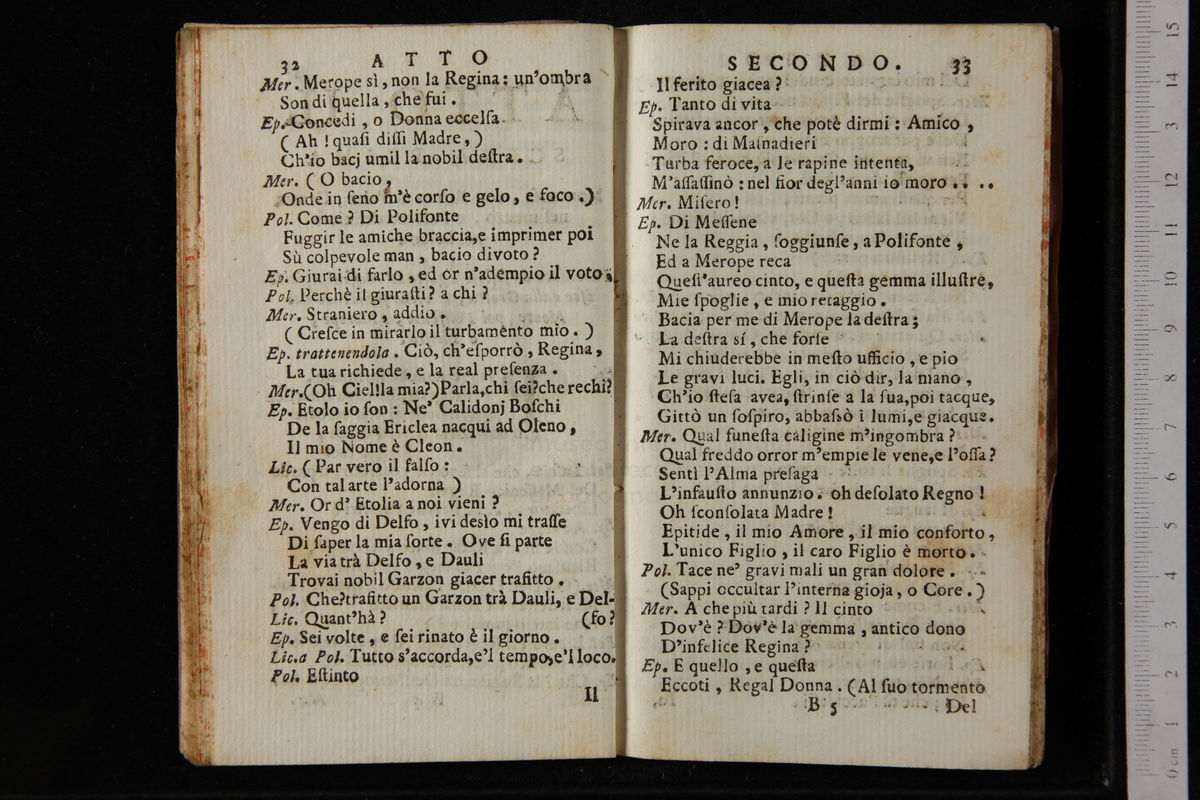 32 ATTO
Mer. Merope sì, non la Regina: un'ombra
Son di quella, che fui.
Ep. Concedi, o Donna eccelſa
(Ah! quaſi diſſi Madre,)
Ch'io bacj umil la nobil deſtra.
Mer. (O bacio,
Onde in ſeno m'è corſo e gelo, e foco.)
Pol. Come? Di Polifonte
Fuggir le amiche braccia,e imprimer poi
Sù colpevole man, bacio divoto?
Ep. Giurai di farlo, ed or n'adempio il voto.
Pol. Perchè il giuraſti? a chi?
Mer. Straniero, addio.
(Creſce in mirarlo il turbamento mio.)
Ep. trattenendola. Ciò, ch'eſporrò, Regina,
La tua richiede, e la real preſenza.
Mer.(Oh Ciel!la mia?)Parla,chi ſei?che rechi?
Ep. Etolo io ſon: Ne' Calidonj Boſchi
De la ſaggia Ericlea nacqui ad Oleno,
Il mio Nome è Cleon.
Lic. (Par vero il falſo:
Con tal arte l'adorna)
Mer. Or d' Etolia a noi vieni?
Ep. Vengo di Delfo, ivi desìo mi traſſe
Di ſaper la mia ſorte. Ove ſi parte
La via trà Delfo, e Dauli
Trovai nobil Garzon giacer trafitto.
Pol. Che?trafitto un Garzon trà Dauli, e Del-
Lic. Quant'hà? (fo?
Ep. Sei volte, e ſei rinato è il giorno.
Lic.a Pol. Tutto s'accorda,e'l tempo,e'l loco.
Pol. Eſtinto
Il
SECONDO. 33
Il ferito giacea?
Ep. Tanto di vita
Spirava ancor, che potè dirmi: Amico,
Moro: di Malnadieri
Turba feroce, a le rapine intenta,
M'aſſaſſinò: nel fior degl'anni io moro....
Mer. Miſero!
Ep. Di Meſſene
Ne la Reggia, ſoggiunſe, a Polifonte,
Ed a Merope reca
Queſt'aureo cinto, e queſta gemma illuſtre,
Mie ſpoglie, e mio retaggio.
Bacia per me di Merope la deſtra;
La deſtra sí, che forſe
Mi chiuderebbe in meſto ufficio, e pio
Le gravi luci. Egli, in ciò dir, la mano,
Ch'io ſteſa avea, ſtrinſe a la ſua,poi tacque,
Gittò un ſoſpiro, abbaſsò i lumi,e giacque.
Mer. Qual funeſta caligine m'ingombra?
Qual freddo orror m'empie le vene,e l'oſſa?
Sentì l'Alma preſaga
L'infauſto annunzio. oh deſolato Regno!
Oh ſconſolata Madre!
Epitide, il mio Amore, il mio conforto,
L'unico Figlio, il caro Figlio è morto.
Pol. Tace ne' gravi mali un gran dolore.
(Sappi occultar l'interna gioja, o Core.)
Mer. A che più tardi? Il cinto
Dov'è? Dov'è la gemma, antico dono
D'infelice Regina?
Ep. E quello, e queſta
Eccoti, Regal Donna. (Al ſuo tormento
B 5 Del
15
14
13
12
11
10
9
8
7
6
5
4
3
2
1
0 cm